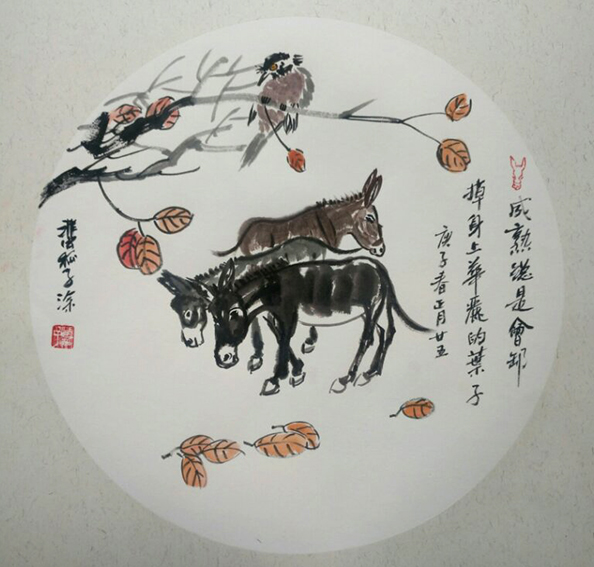 成熟總是會卸
掉身上華麗的葉子
庚子春正月廿五
子涂